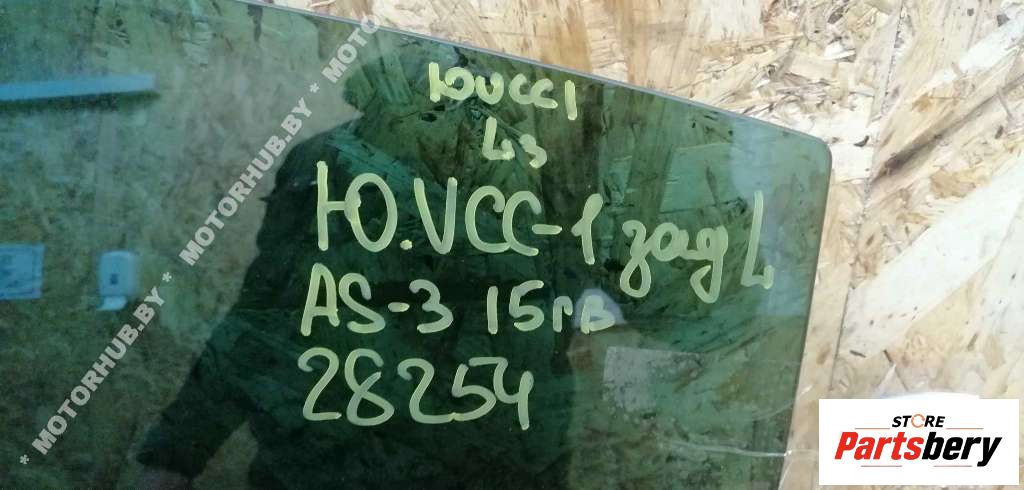 ЮVCC1
L3
Ю.VCC-1 зад L
AS-3 15гв
28254
* MOTORHUB.BY * MOTORHUB.BY * MOTORHUB.BY * MOTO
STORE
Partsbery